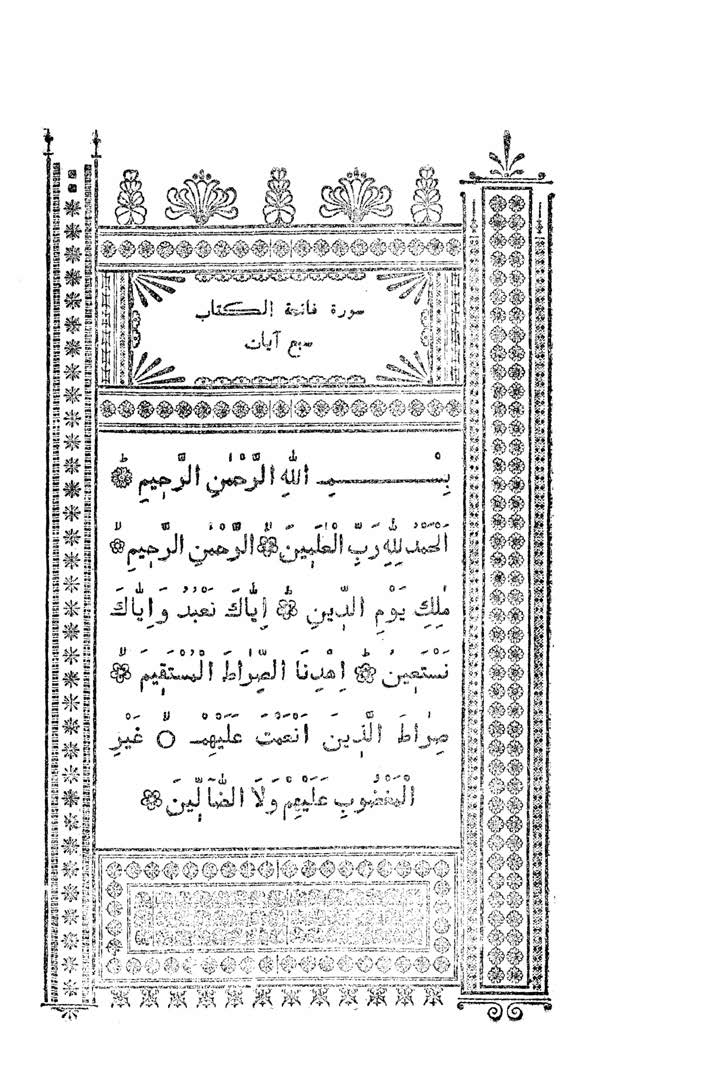 سورة فاتحة الكتاب
سبع آيات
بِسْــــــمِ اللّٰهِ الرَّحْمٰنِ الرَّحِيمِ
اَلْحَمْدُ لِلّٰهِ رَبِّ الْعٰلَمِينَ ۙ الرَّحْمٰنِ الرَّحِيمِ ۙ
مٰلِكِ يَوْمِ الدِّينِ ۗ اِيَّاكَ نَعْبُدُ وَاِيَّاكَ
نَسْتَعِينُ ۗ اِهْدِنَا الصِّرَاطَ الْمُسْتَقِيمَ ۙ
صِرَاطَ الَّذِينَ اَنْعَمْتَ عَلَيْهِمْ ۙ غَيْرِ
الْمَغْضُوبِ عَلَيْهِمْ وَلَا الضَّآلِّينَ